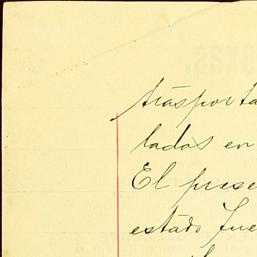 trasporta
lados en
El prese
estado fue